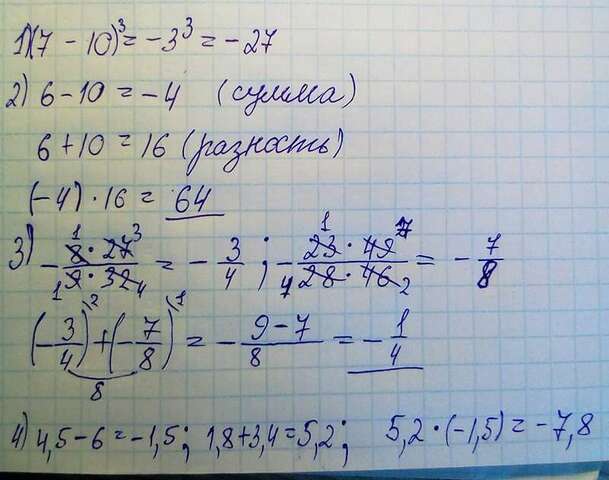 1) (7 - 10)³ = -3³ = -27
2) 6 - 10 = -4 (сумма)
6 + 10 = 16 (разность)
(-4) · 16 = 64
3) - 8 · 27 / 9 · 32 = - 3/4 ; - 23 · 49 / 28 · 46 = - 7/8
(- 3/4) + (- 7/8) = - 9 - 7 / 8 = - 1/4
4) 4,5 - 6 = -1,5; 1,8 + 3,4 = 5,2; 5,2 · (-1,5) = -7,8